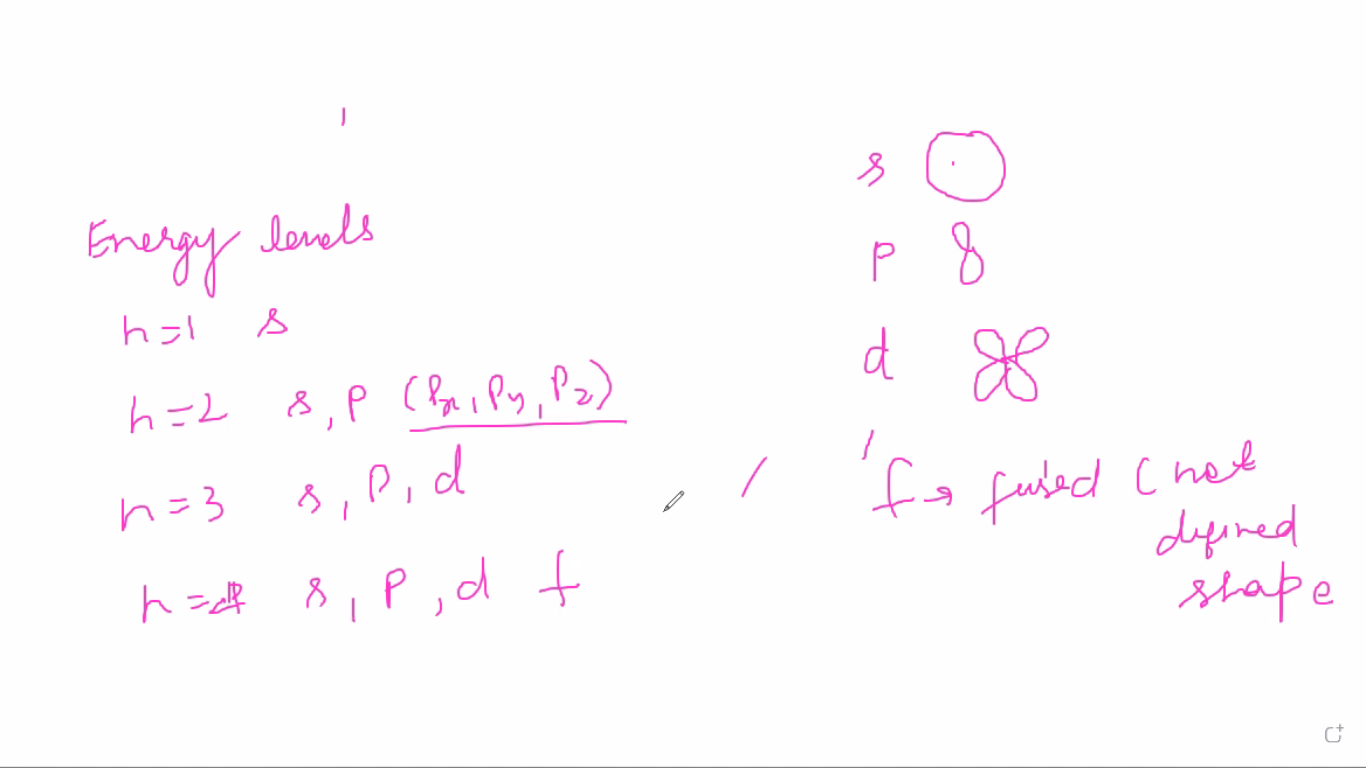 Energy levels
n=1 s
n=2 s, p (Px, Py, Pz)
n=3 s, p, d
n=4 s, p, d f
s
p
d
f → fused (not
defined
shape